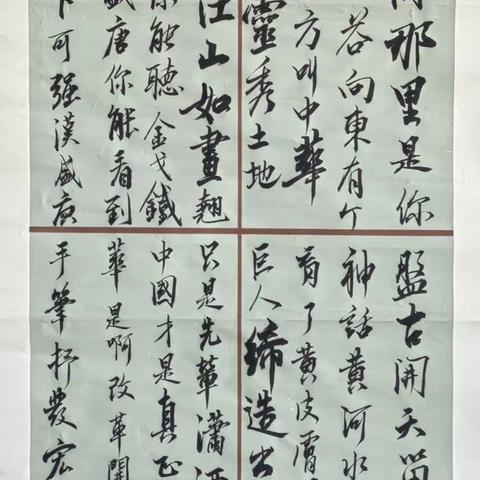 那里是你
答向東有个
方叫中華
靈秀土地
江山如畫翹
你能聽金戈鐵
盛唐你能看到
下可强漢盛唐
盤古開天留
神話黄河水
育了黄皮膚
巨人缔造出
只是先輩瀟洒
中國才是真正
華是啊改革開
手筆抒發宏